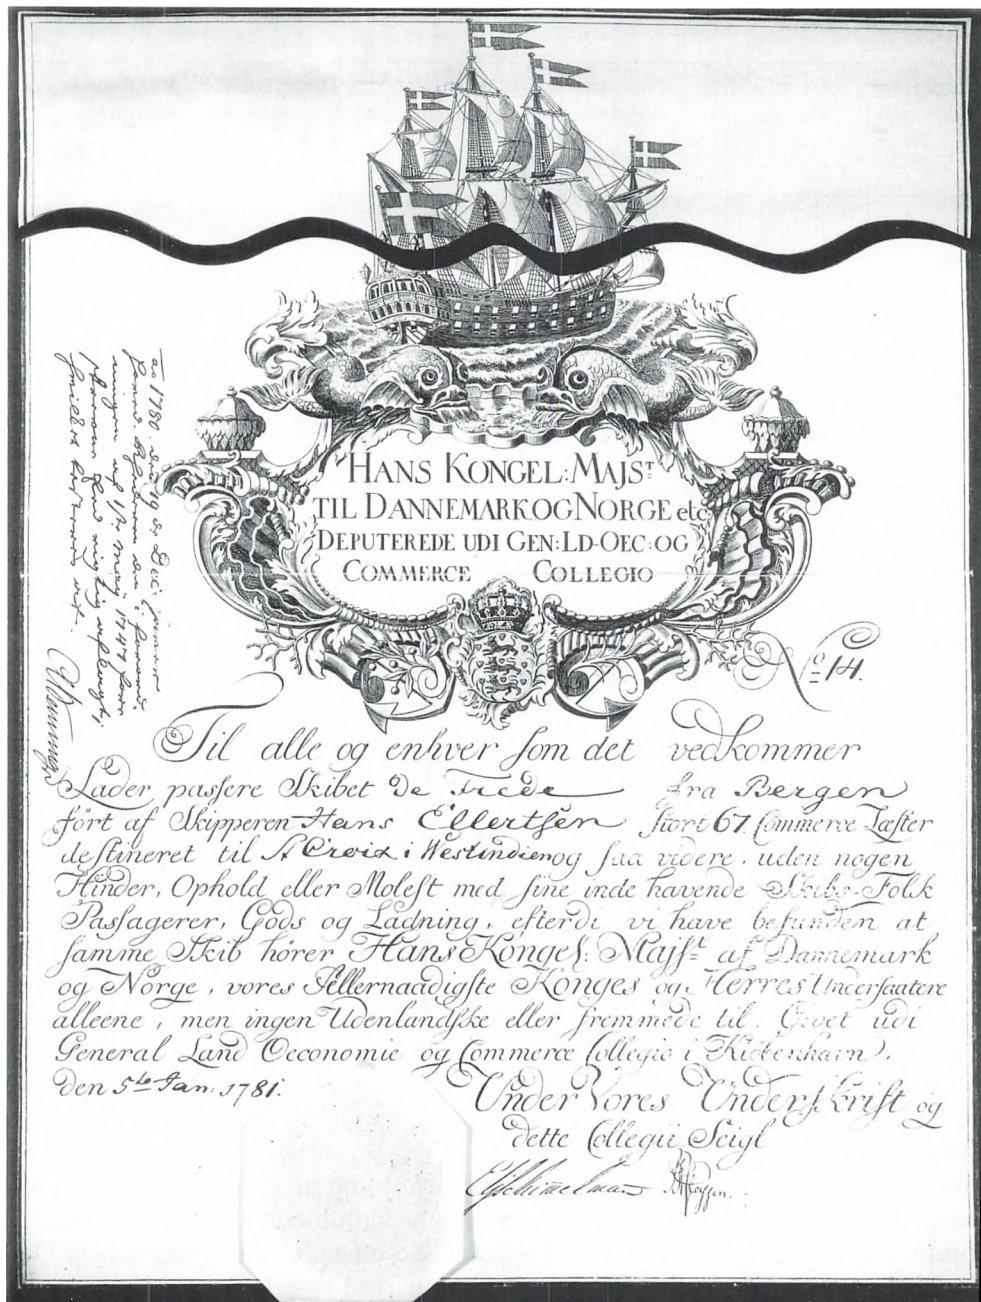 HANS KONGEL: MAJST:
TIL DANNEMARK OG NORGE etc
DEPUTEREDE UDI GEN: LD-OEC: OG
COMMERCE COLLEGIO
No 14.
Til alle og enhver som det vedkommer
Lader passere Skibet De Frede fra Bergen
ført af Skipperen Hans Ellertsen stort 67 Commerce Læster
destineret til St Croix i Westindien og saa videre, uden nogen
Hinder, Ophold eller Molest med sine inde havende Skibs-Folk
Passagerer, Gods og Ladning, efterdi vi have befunden at
samme Skib hører Hans Kongel: Majst: af Dannemark
og Norge, vores Allernaadigste Konges og Herres Undersaatere
alleene, men ingen Udenlandske eller fremmede til. Givet udi
General Land Oeconomie og Commerce Collegio i Kiøbenhavn.
den 5te Jan: 1781.
Under Vores Underskrift og
dette Collegii Seigl
Schimmelmann
ao 1780. d. 19 Dec:
af 1/2 Maji 1744
rigtig aflengt,